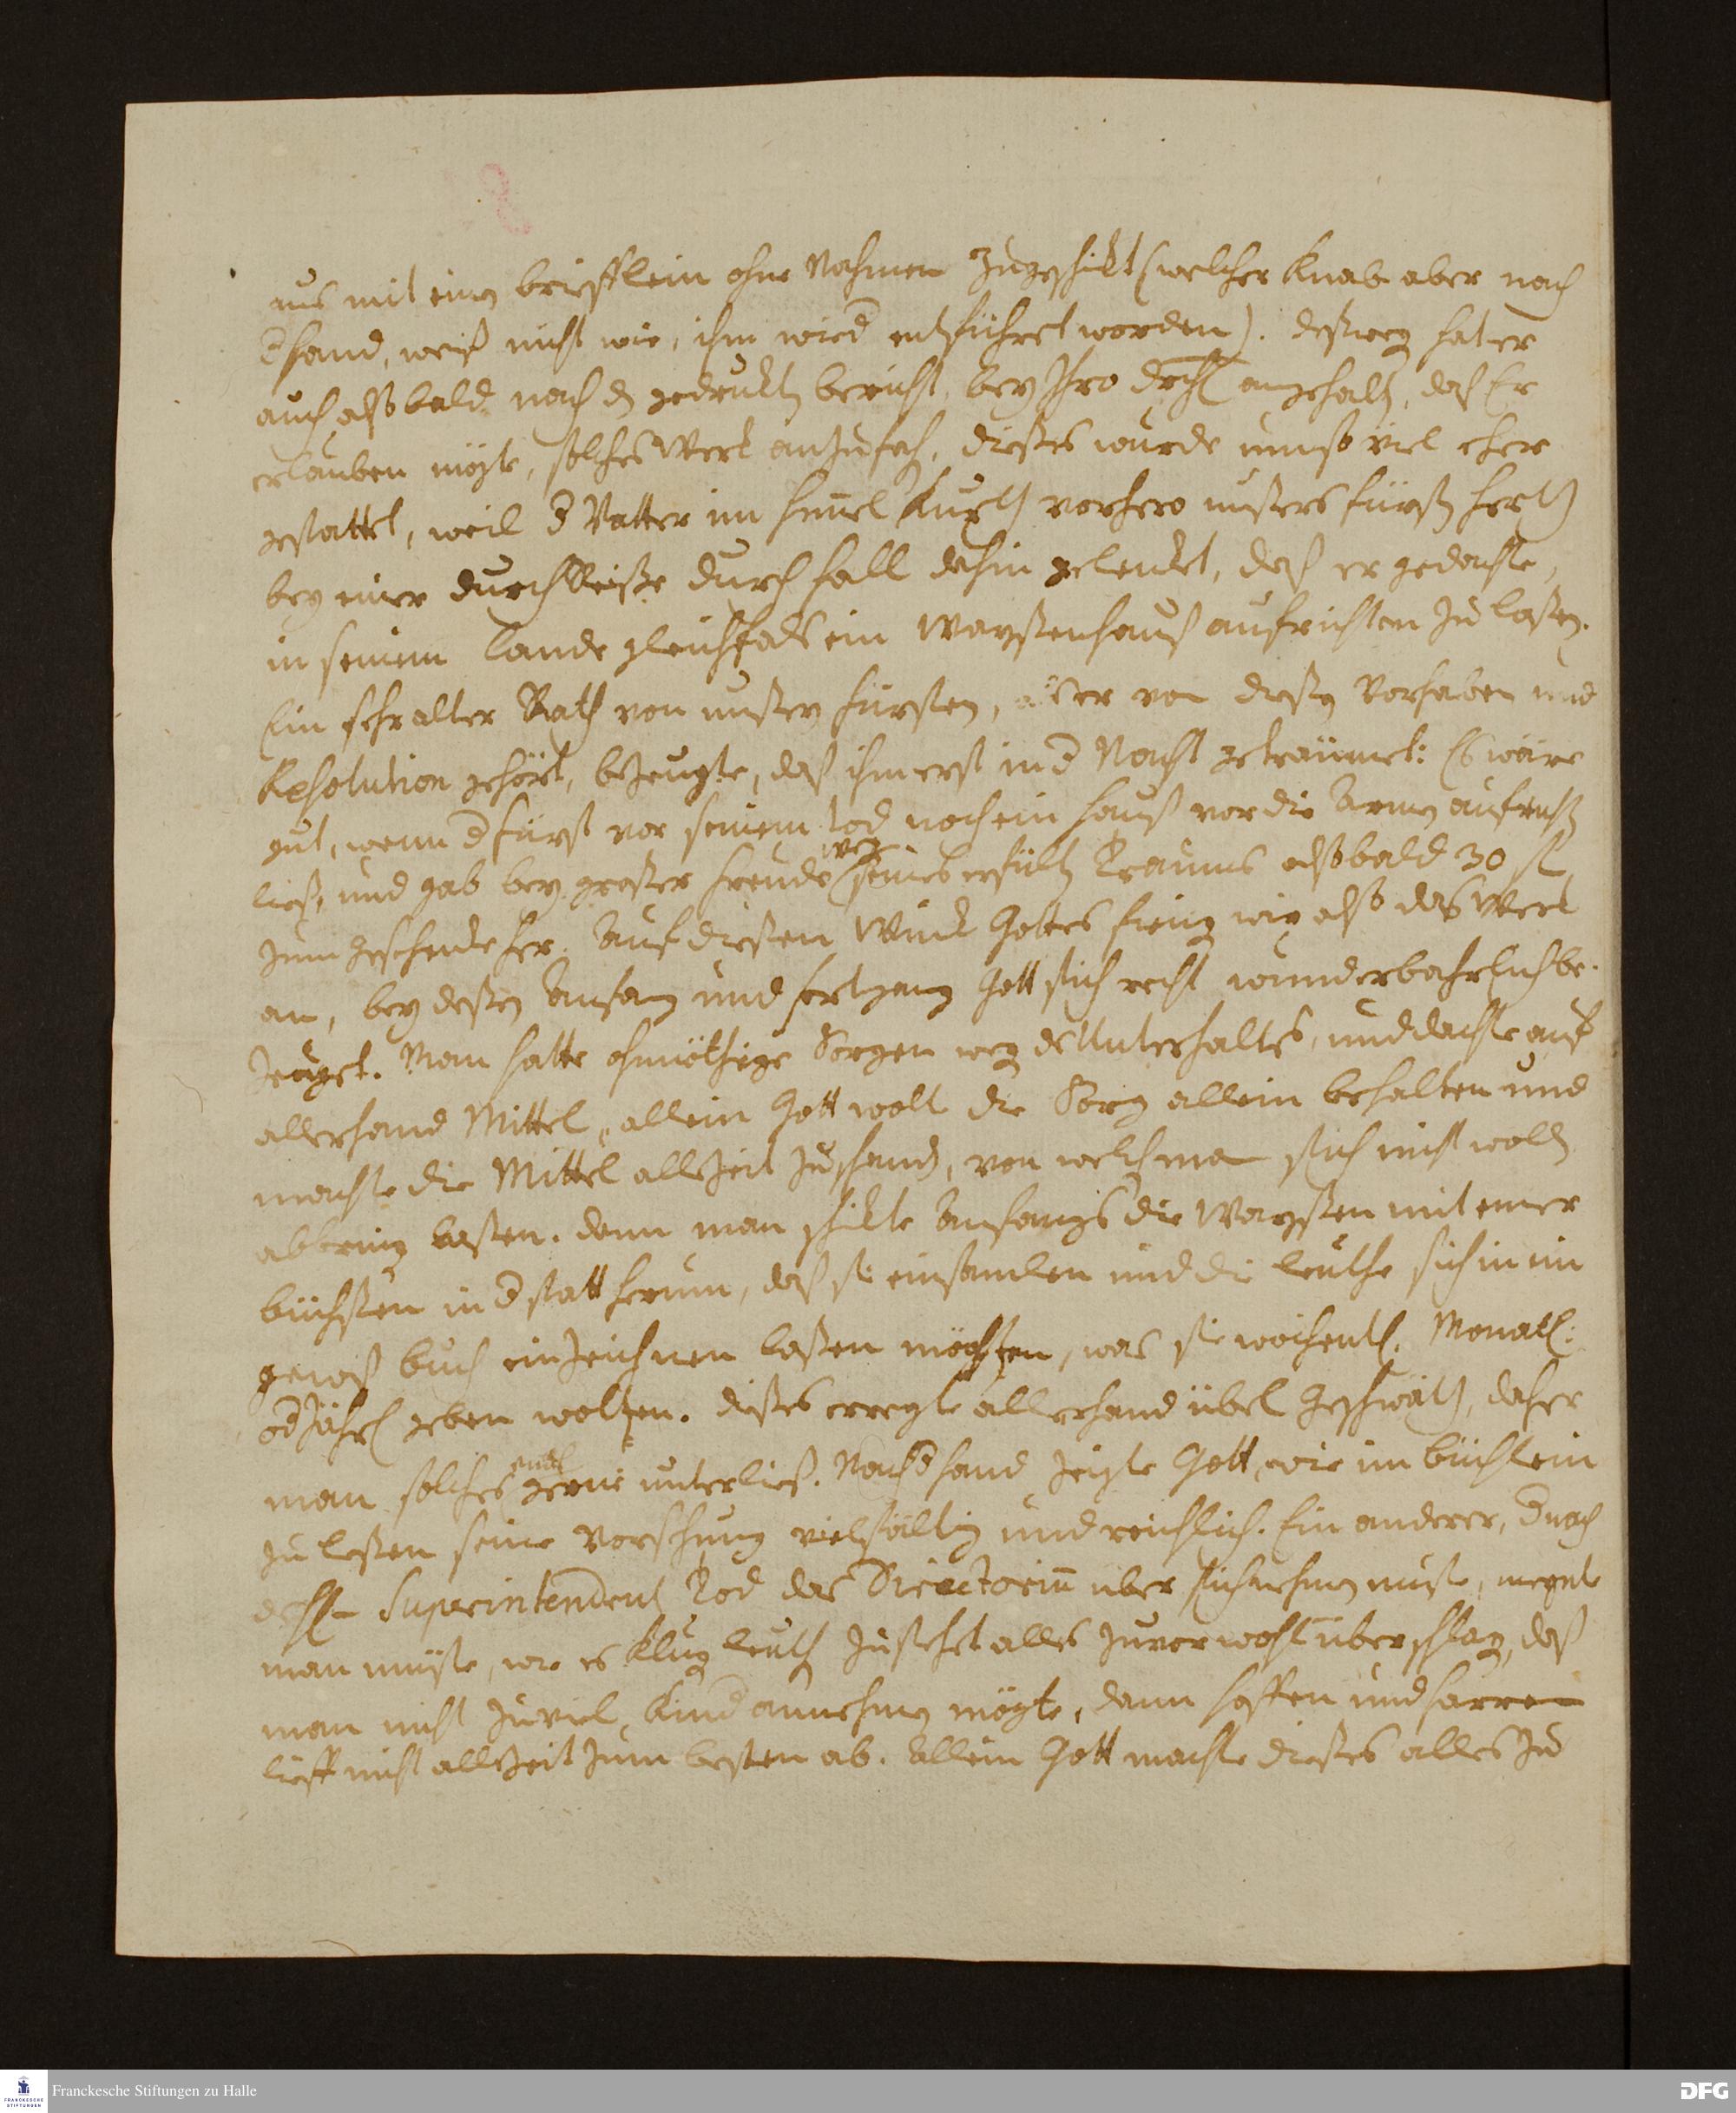 aus mit einem briefflein ohne Nahmen zugeschikt (welcher Knab aber nach
d hand, weiß nicht wie, ihm wied entführet worden). deßweg hat er
auch alßbald nach dem gedrukten bericht, bey Ihro Drchl angehalten, daß Er
erlauben mögte, solches Werk anzufah, dießes wurde umso viel eher
gestattet, weil d Vatter im himel kurtz vorhero unßers fürsten hertz
bey einer durchReiße durch hall dahin gelenket, daß er gedachte,
in seinem Lande gleichfals ein Wayßenhauß aufrichten zu laßen.
Ein sehr alter Rath von unßerm fürsten, als er von dießem Vorhaben und
Resolution gehört, bezeugte, daß ihm erst in d Nacht geträumet: Es wäre
gut, wenn d fürst vor seinem tod noch ein hauß vor die Armen aufrichten
ließ, und gab bey großer freude weg seines erfülten Traums alßbald 30 fl
zum geschenke her. Auf dießen Wink Gottes fieng wir alßo das Werk
an, bey deßen Anfang und fortgang Gott sich recht wunderbahrlich be-
zeuget. Man hatte ohnnöthige Sorgen weg des Unterhaltes, und dachte auf
allerhand Mittel, allein Gott wolt die Sorg allein behalten und
machte die Mittel allezeit zuschand, von welchen man sich nicht wollen
abbring laßen. denn man schikte Anfangs die Wayßen mit einer
büchßen in d statt herum, daß sie einsamlen und die leuthe sich in ein
gewiß buch einzeichnen laßen möchten, was sie wöchentl. Monatl:
od Jährl geben wolten. dießes erregte allerhand übel geschwätz, daher
man solches endl gerne unterließ. Nach d hand zeigte Gott, wie im büchlein
zu leßen seine Vorsehung vielfältig und reichlich. Ein anderer, d nach
deß Superintendent Tod das Directorium über sich nehmen muste, meynte
man müste, wie es klug leuth zustehet alles zuvor wohl überschlag, daß
man nicht zuviel Kind annehmen mögte, denn hoffen und harren
lieff nicht allezeit zum besten ab. Allein Gott machte dießes alles zu
Franckesche Stiftungen zu Halle
DFG